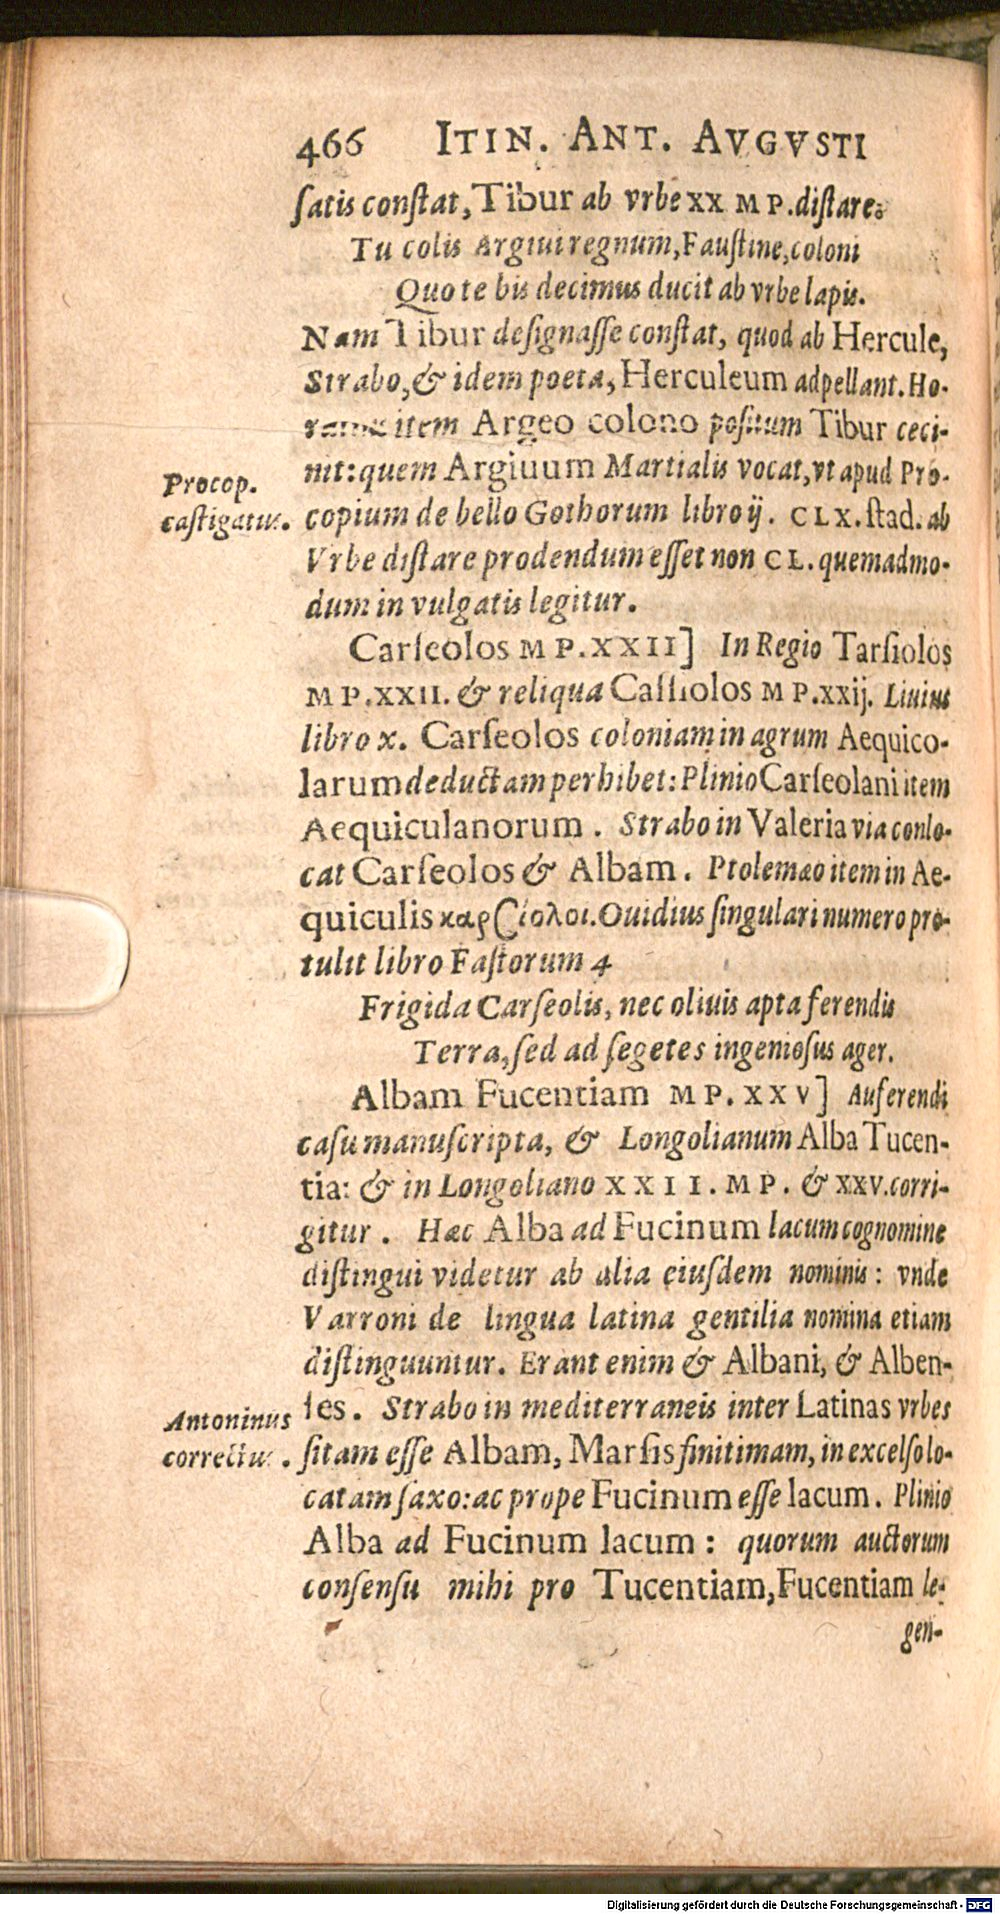 466 ITIN. ANT. AVGVSTI
ſatis conſtat, Tibur ab vrbe XX MP. diſtare.
Tu colis Argiui regnum, Fauſtine, coloni
Quo te bis decimus ducit ab vrbe lapis.
Nam Tibur deſignaſſe conſtat, quod ab Hercule,
Strabo, & idem poeta, Herculeum adpellant. Ho-
item Argeo colono poſitum Tibur ceci-
nit: quem Argiuum Martialis vocat, vt apud Pro-
Procop.
caſtigatus.
copium de bello Gothorum libro ij. CLX. ſtad. ab
Vrbe diſtare prodendum eſſet non CL. quemadmo-
dum in vulgatis legitur.
Carſeolos MP. XXII] In Regio Tarſiolos
MP. XXII. & reliqua Caſſiolos MP. xxij. Liuius
libro x. Carſeolos coloniam in agrum Aequico-
larum deductam perhibet: Plinio Carſeolani item
Aequiculanorum. Strabo in Valeria via conlo-
cat Carſeolos & Albam. Ptolemæo item in Ae-
quiculis καρσίολοι. Ouidius ſingulari numero pro-
tulit libro Faſtorum 4
Frigida Carſeolis, nec oliuis apta ferendis
Terra, ſed ad ſegetes ingenioſus ager.
Albam Fucentiam MP. XXV] Auferendi
caſu manuſcripta, & Longolianum Alba Tucen-
tia: & in Longoliano XXII. MP. & XXV. corri-
gitur. Hæc Alba ad Fucinum lacum cognomine
diſtingui videtur ab alia eiuſdem nominis: vnde
Varroni de lingua latina gentilia nomina etiam
diſtinguuntur. Erant enim & Albani, & Alben-
ſes. Strabo in mediterraneis inter Latinas vrbes
Antoninus
correctus.
ſitam eſſe Albam, Marſis finitimam, in excelſo lo-
catam ſaxo: ac prope Fucinum eſſe lacum. Plinio
Alba ad Fucinum lacum: quorum auctorum
conſenſu mihi pro Tucentiam, Fucentiam le-
gen-
Digitalisierung gefördert durch die Deutsche Forschungsgemeinschaft - DFG